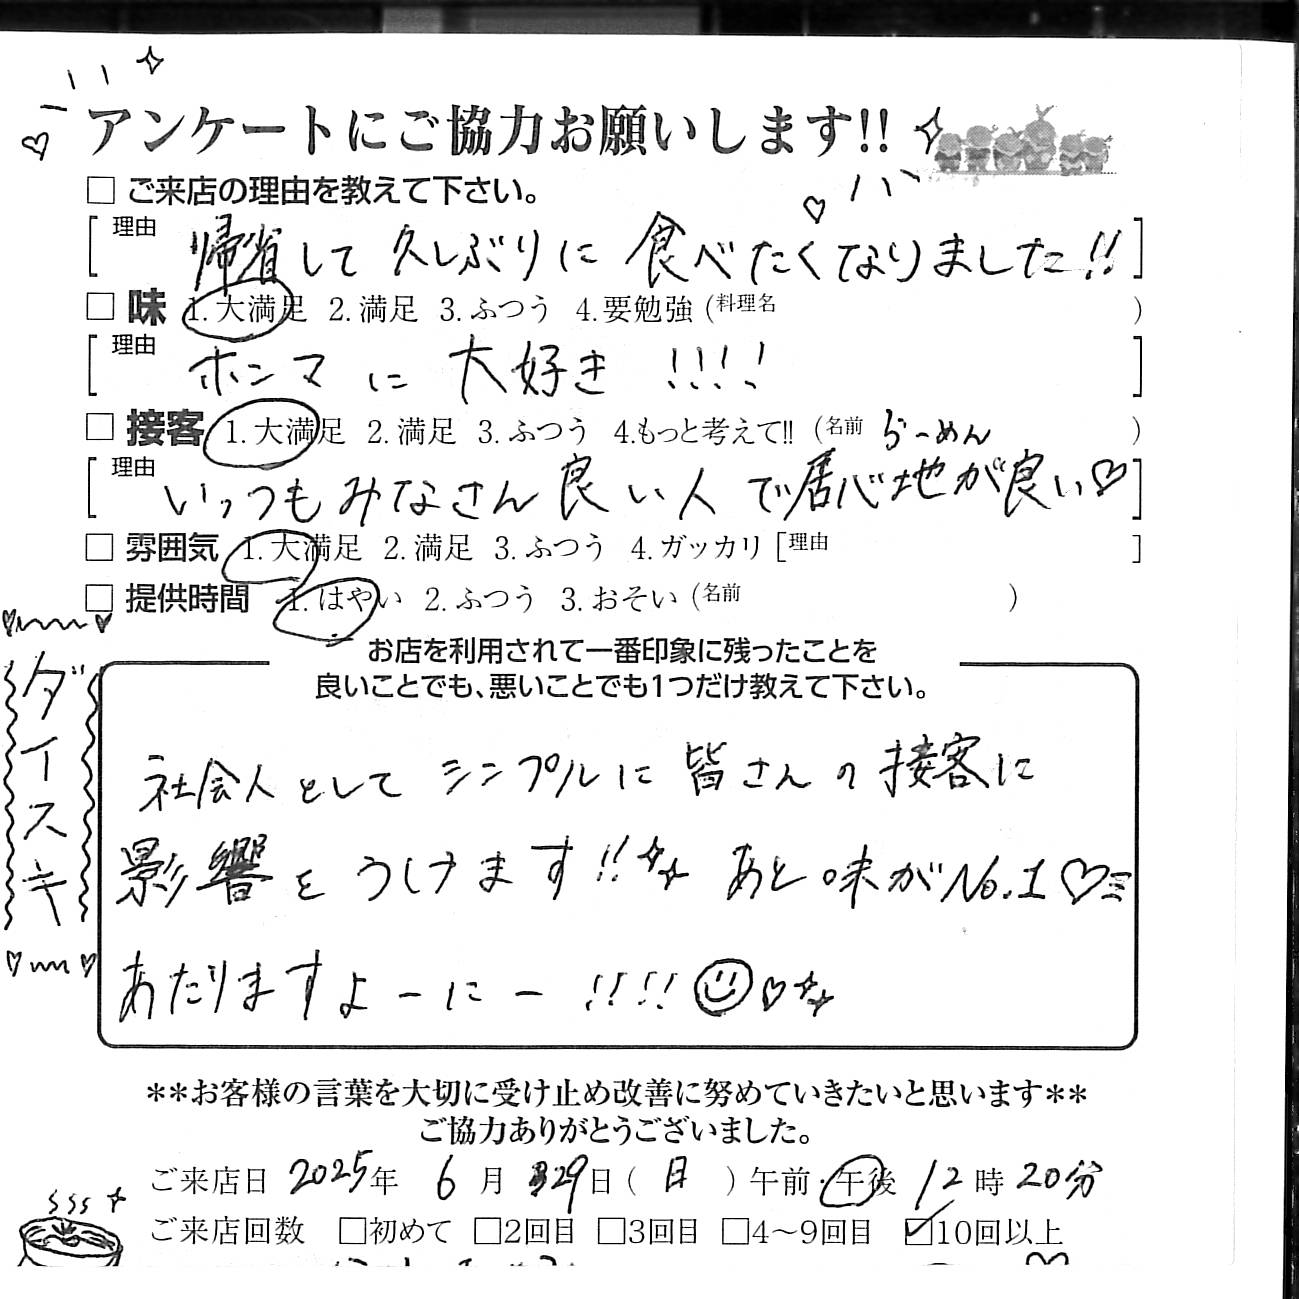 アンケートにご協力お願いします!!
□ ご来店の理由を教えて下さい。
[理由 帰省して 久しぶりに 食べたくなりました!!]
□ 味 1.大満足 2.満足 3.ふつう 4.要勉強 (料理名 )
[理由 ホンマに 大好き !!!!]
□ 接客 1.大満足 2.満足 3.ふつう 4.もっと考えて!! (名前 らーめん )
[理由 いっつもみなさん良い人で居心地が良い♡]
□ 雰囲気 1.大満足 2.満足 3.ふつう 4.ガッカリ [理由 ]
□ 提供時間 1.はやい 2.ふつう 3.おそい (名前 )
ダイスキ
お店を利用されて一番印象に残ったことを
良いことでも、悪いことでも1つだけ教えて下さい。
社会人として シンプルに 皆さんの接客に
影響をうけます!! あと味がNo.1♡
あたりますよーにー !!!!
**お客様の言葉を大切に受け止め改善に努めていきたいと思います**
ご協力ありがとうございました。
ご来店日 2025年 6月 29日 ( 日 ) 午前・午後 12時20分
ご来店回数 □初めて □2回目 □3回目 □4〜9回目 ☑10回以上